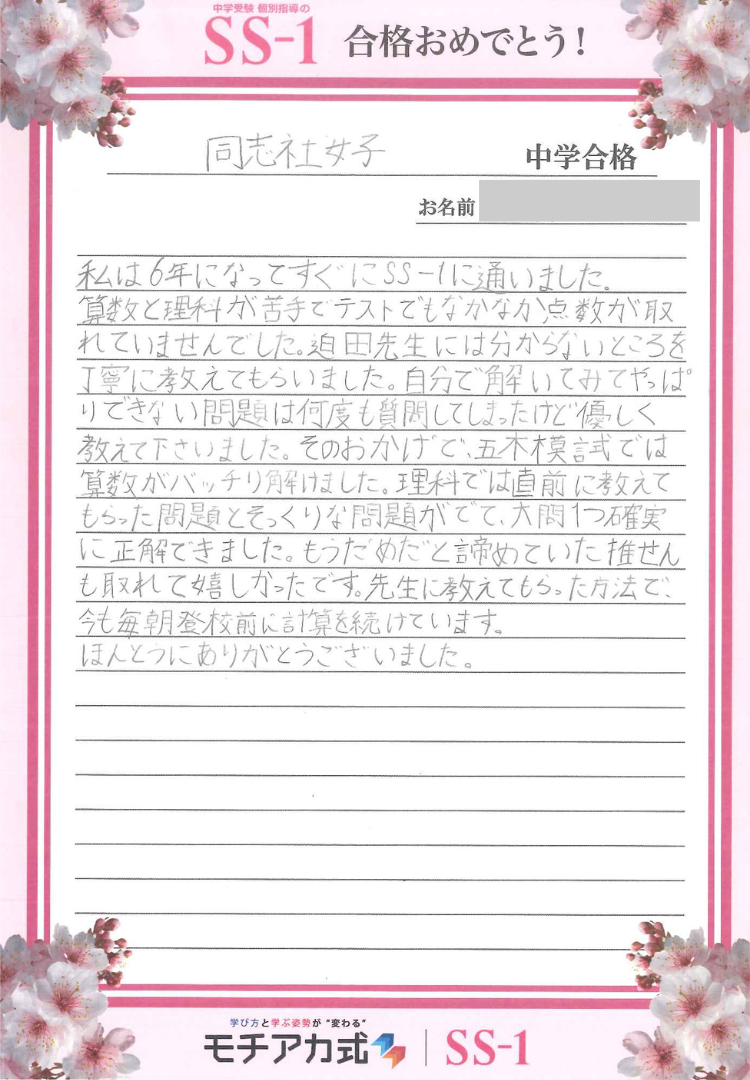 中学受験 個別指導の
SS-1 合格おめでとう!
同志社女子 中学合格
お名前
私は6年になってすぐにSS-1に通いました。
算数と理科が苦手でテストでもなかなか点数が取
れていませんでした。迫田先生には分からないところを
丁寧に教えてもらいました。自分で解いてみてやっぱ
りできない問題は何度も質問してしまったけど優しく
教えて下さいました。そのおかげで、五木模試では
算数がバッチリ解けました。理科では直前に教えて
もらった問題とそっくりな問題がでて、大問1つ確実
に正解できました。もうだめだと諦めていた推せん
も取れて嬉しかったです。先生に教えてもらった方法で、
今も毎朝登校前に計算を続けています。
ほんとうにありがとうございました。
学び方と学ぶ姿勢が"変わる"
モチアカ式 SS-1